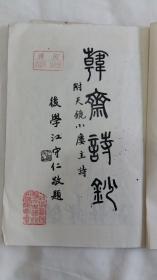 韓齋詩鈔
附天鏡小廔主詩
後學江守仁敬題